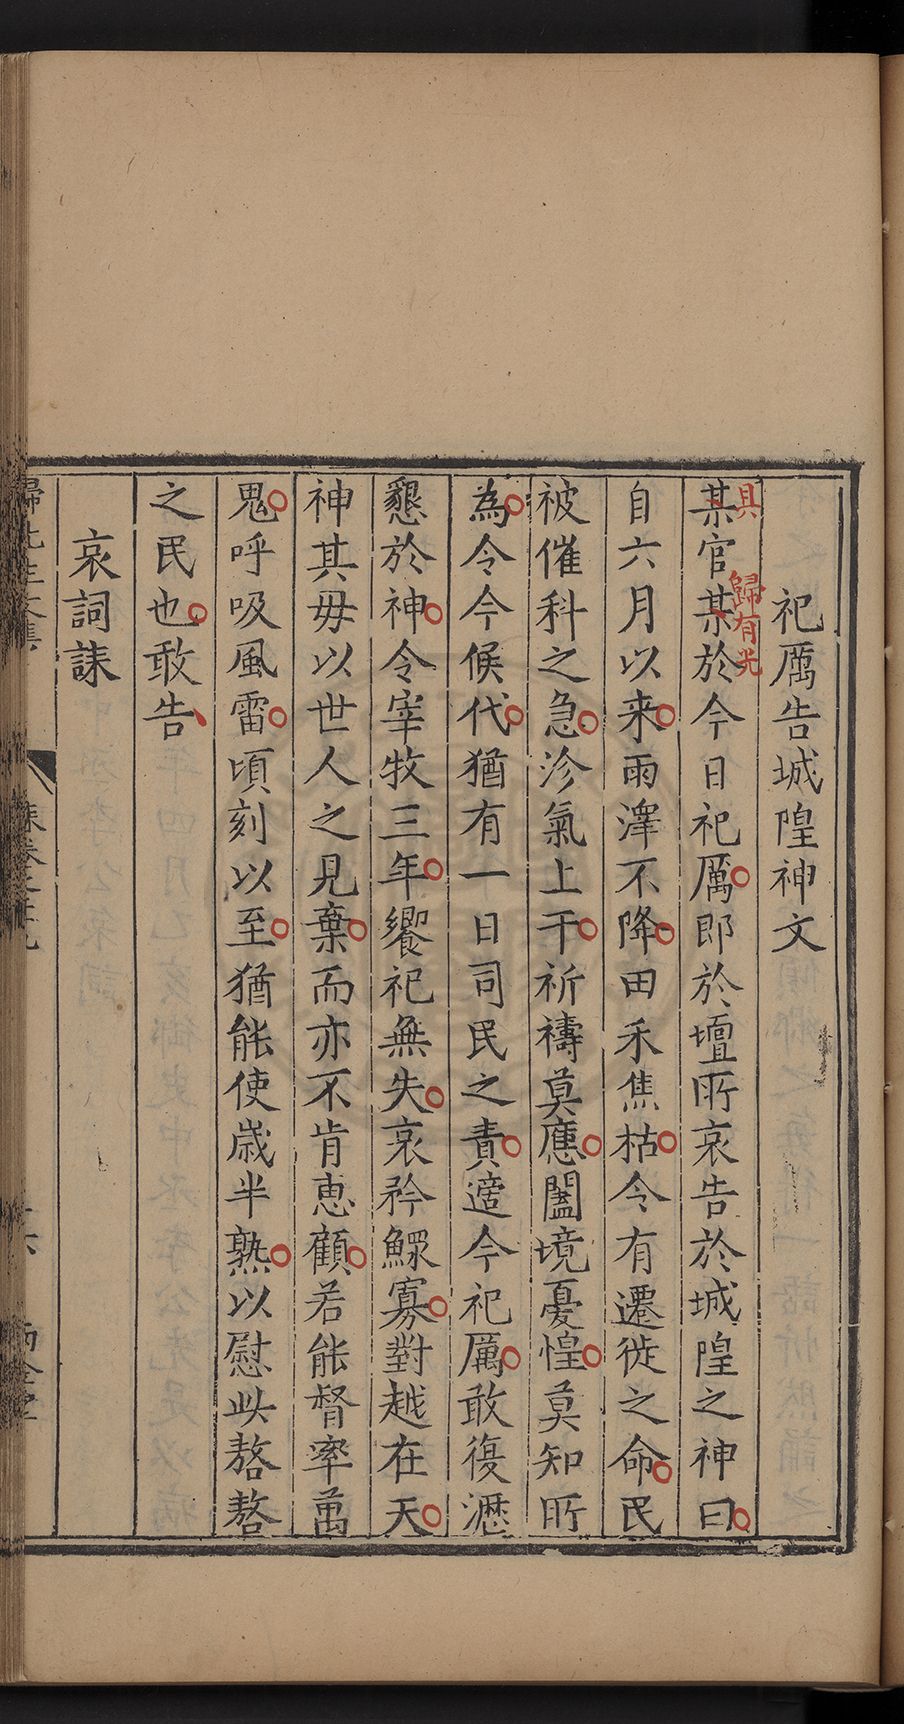 祀厲告城隍神文
某官某於今日祀厲郎於壇所哀告於城隍之神曰
具
歸有光
自六月以来雨澤不降田禾焦枯令有遷徙之命民
被催科之急沴氣上干祈禱莫應闔境憂惶莫知所
為令今候代猶有一日司民之責適今祀厲敢復瀝
懇於神令宰牧三年饗祀無失哀矜鰥寡對越在天
神其毋以世人之見棄而亦不肯恵顧若能督率萬
鬼呼吸風雷頃刻以至猶能使歳半熟以慰此嗸嗸
之民也敢告
哀詞誄